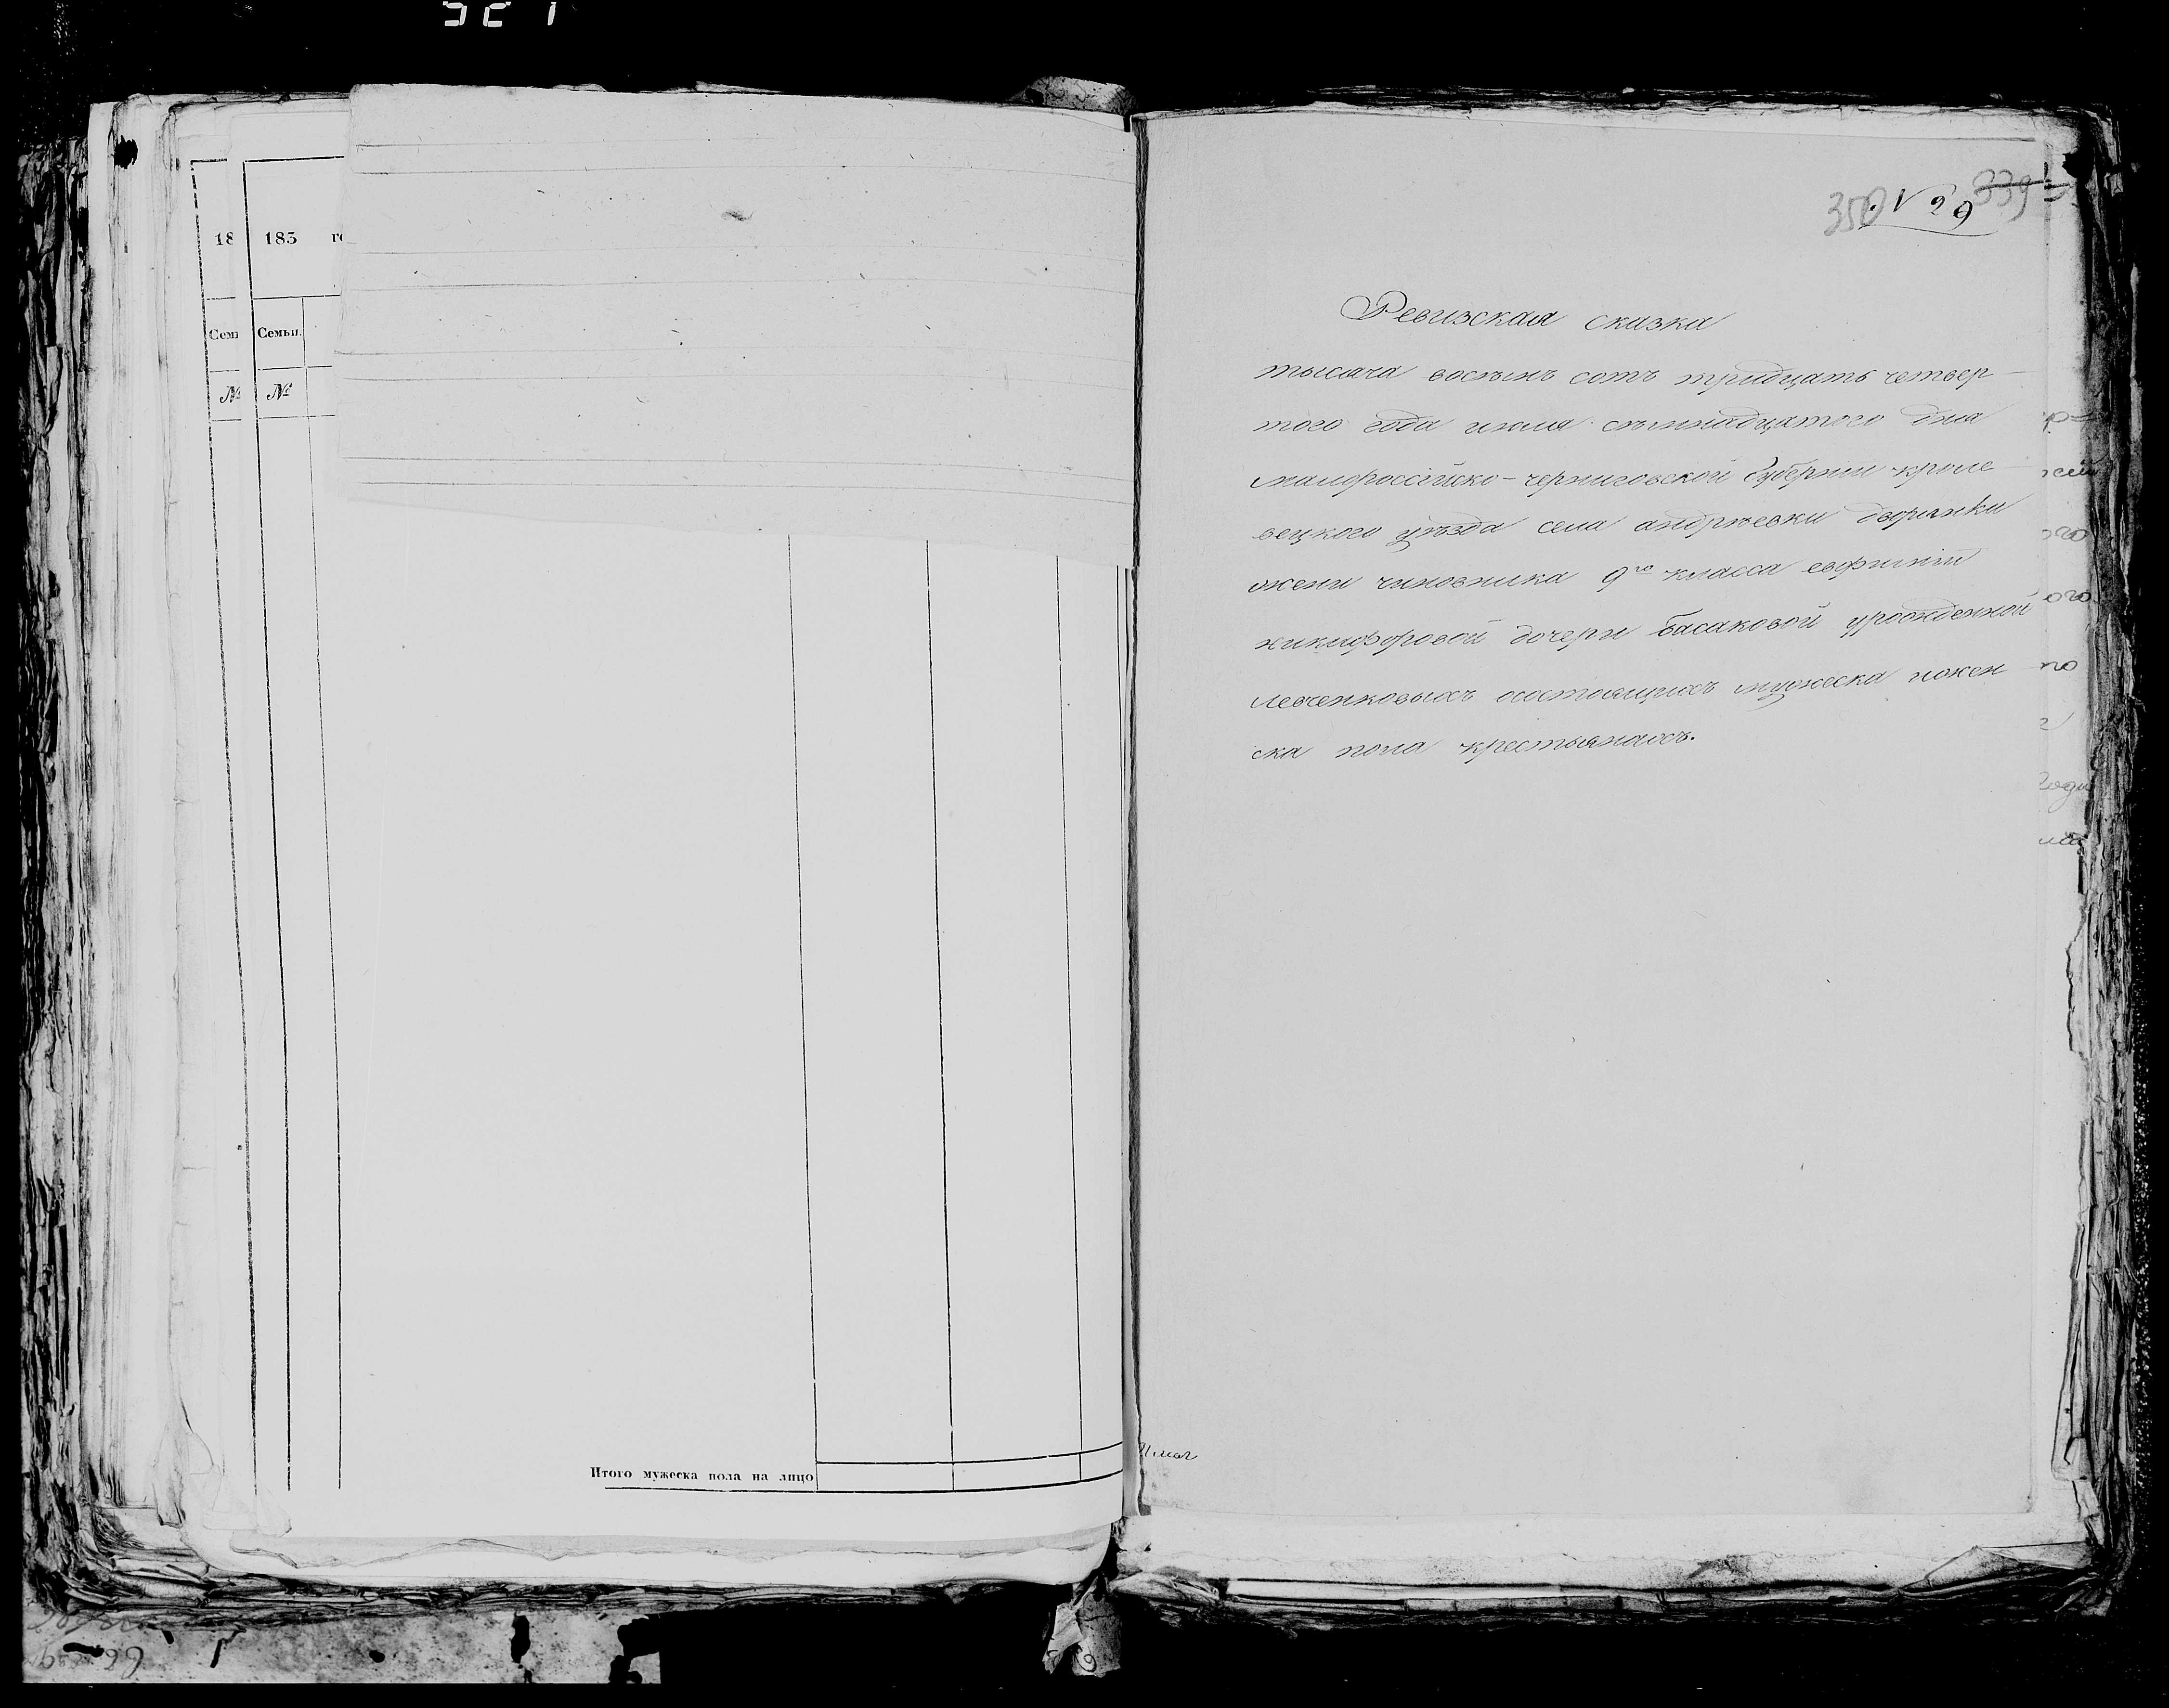 18 183 го
Семь Семьи.
№ №
Итого мужеска пола на лицо
350 № 29 339
Ревизская сказка
тысяча восѣмъ сотъ тридцать четвер
того года июля сѣмнадцатого дня
малороссійско-черниговской Губерніи кроле
вецкого уѣзда села андрѣевки дворянки
жени чиновника 9го класса евфиміи
никифоровой дочери басаковой урожденной
левченковыхъ осостоящихъ мужеска ижен
ска пола крестьянахъ.